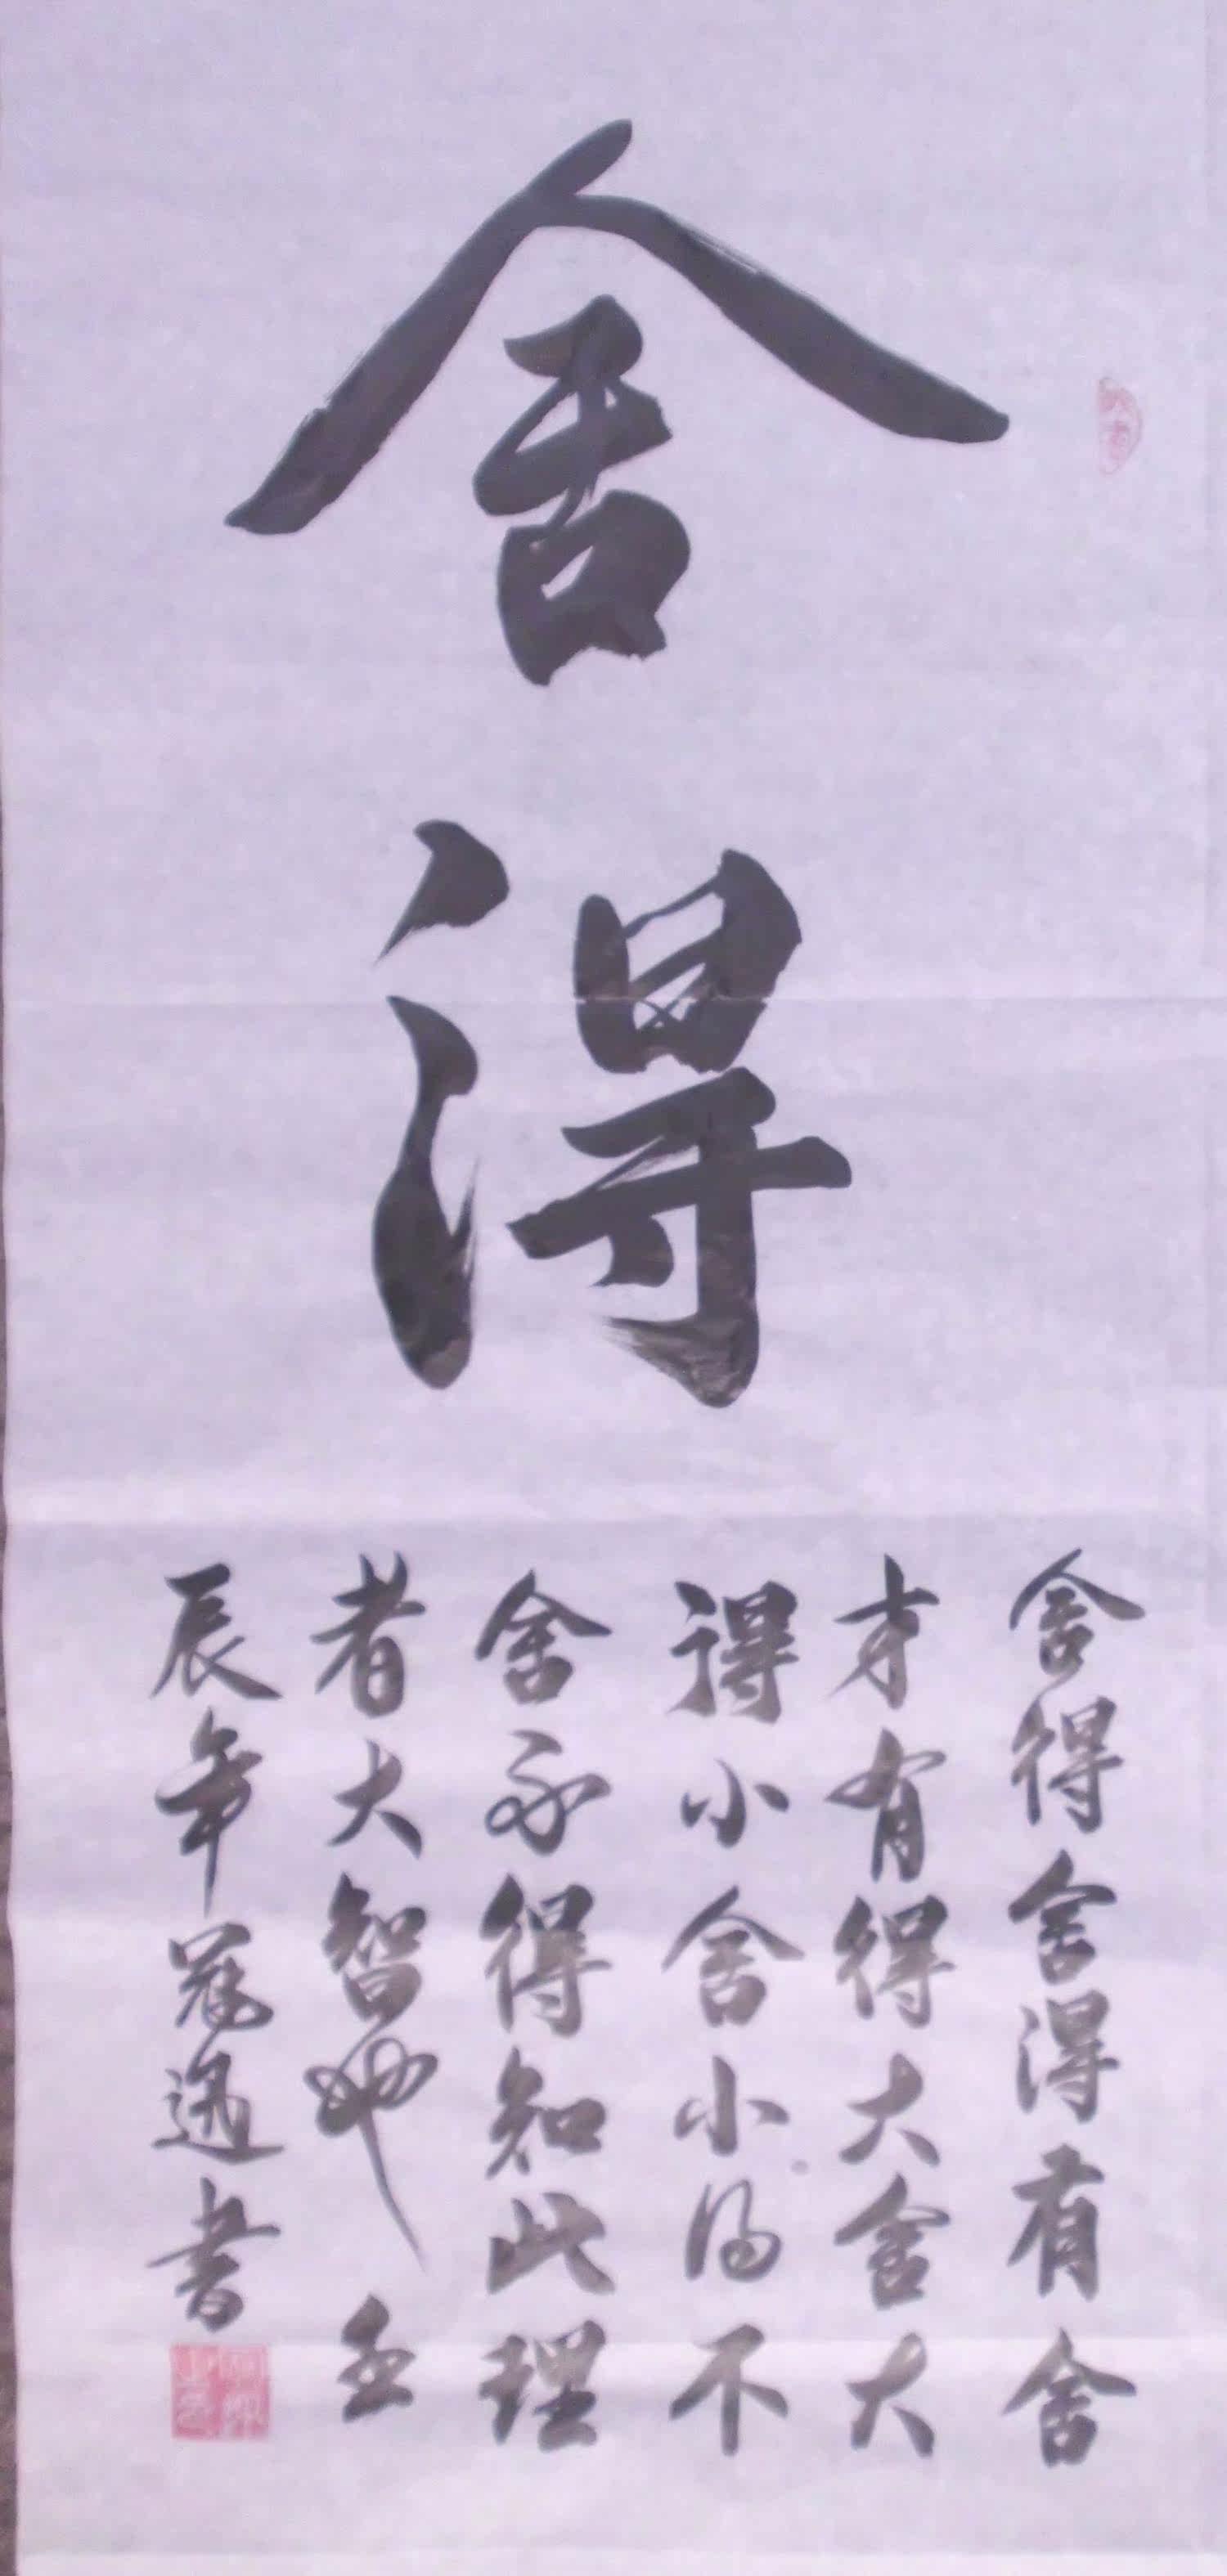 舍
得
舍得舍得有舍
才有得大舍大
得小舍小得不
舍不得知此理
者大智也壬
辰年冠遇書